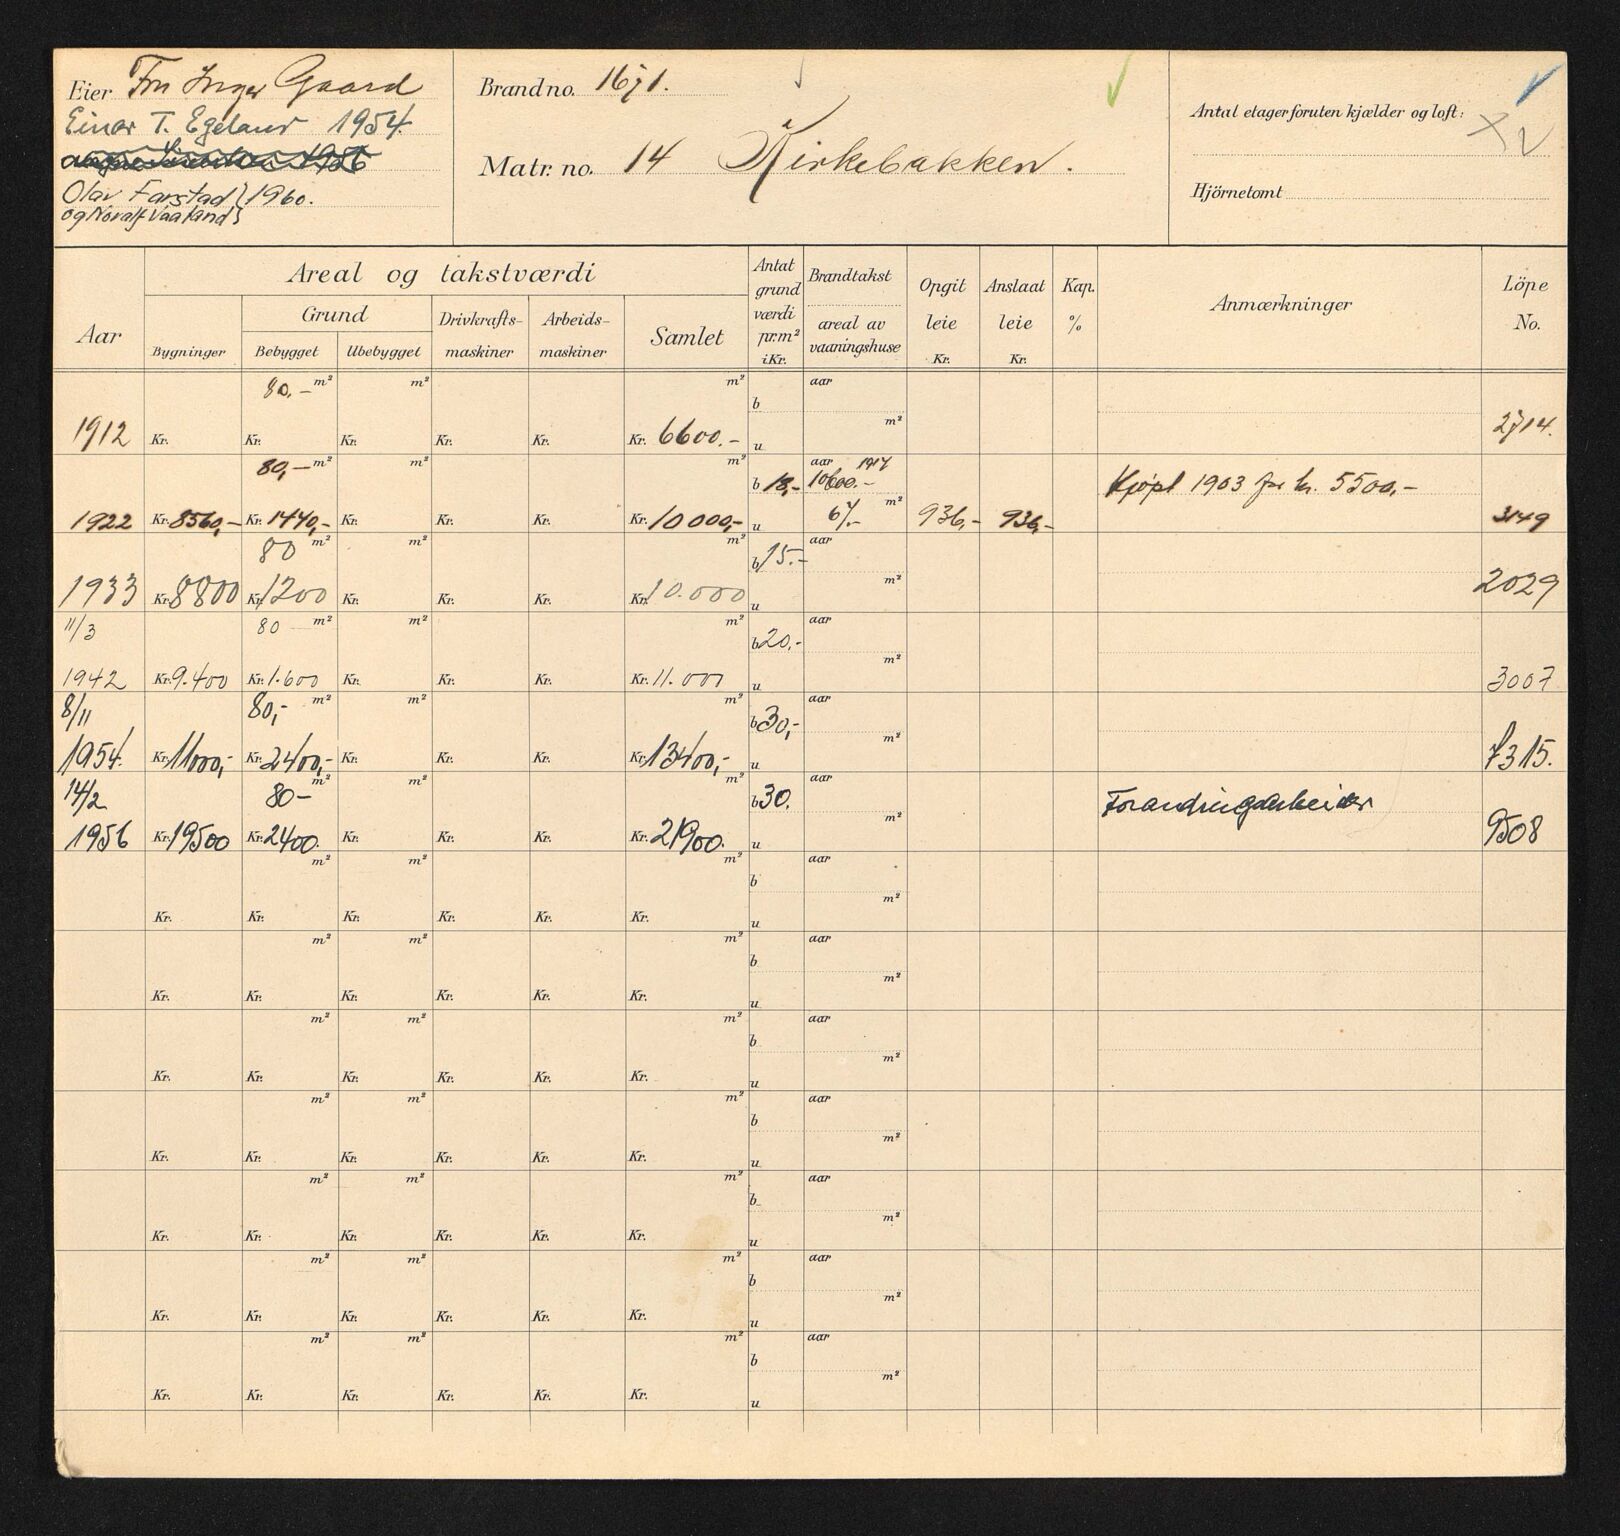 Eier Fru Inger Gaard
Einar T. Egeland 1954.
1956
Olav Farstad } 1960.
og Noralf Vaaland }
Brand no. 1671.
Matr. no. 14 Kirkebakken.
Antal etager foruten kjælder og loft:
Hjörnetomt
Aar
Areal og takstværdi
Grund
Bygninger Bebygget Ubebygget
Drivkrafts-maskiner
Arbeids-maskiner
Samlet
Antat grund værdi pr.m² i Kr.
Brandtakst
areal av vaaningshuse
Opgit leie Kr.
Anslaat leie Kr.
Kap. %
Anmærkninger
Löpe No.
80,- m² m² m² b aar
1912 Kr. Kr. Kr. Kr. Kr. Kr. 6600.- u m² 2714.
80,- m² m² m² b 18,- aar 1917 10600.- Kjøpt 1903 for kr. 5500,-
1922 Kr. 8560,- Kr. 1440,- Kr. Kr. Kr. Kr. 10000,- u 67.- m² 936,- 936,- 3149
80 m² m² m² b 15.- aar
1933 Kr. 8800 Kr. 1200 Kr. Kr. Kr. Kr. 10.000 u m² 2029
11/3 80 m² m² m² b 20,- aar
1942 Kr. 9.400 Kr. 1.600 Kr. Kr. Kr. Kr. 11.000 u m² 3007
8/11 80,- m² m² m² b 30,- aar
1954. Kr. 11000,- Kr. 2400,- Kr. Kr. Kr. Kr. 13400,- u m² 7315.
14/2 80- m² m² m² b 30. aar Forandringsarbeider
1956 Kr. 19500 Kr. 2400. Kr. Kr. Kr. Kr. 21900. u m² 9508
m² m² m² b aar
Kr. Kr. Kr. Kr. Kr. Kr. u m²
m² m² m² b aar
Kr. Kr. Kr. Kr. Kr. Kr. u m²
m² m² m² b aar
Kr. Kr. Kr. Kr. Kr. Kr. u m²
m² m² m² b aar
Kr. Kr. Kr. Kr. Kr. Kr. u m²
m² m² m² b aar
Kr. Kr. Kr. Kr. Kr. Kr. u m²
m² m² m² b aar
Kr. Kr. Kr. Kr. Kr. Kr. u m²
m² m² m² b aar
Kr. Kr. Kr. Kr. Kr. Kr. u m²